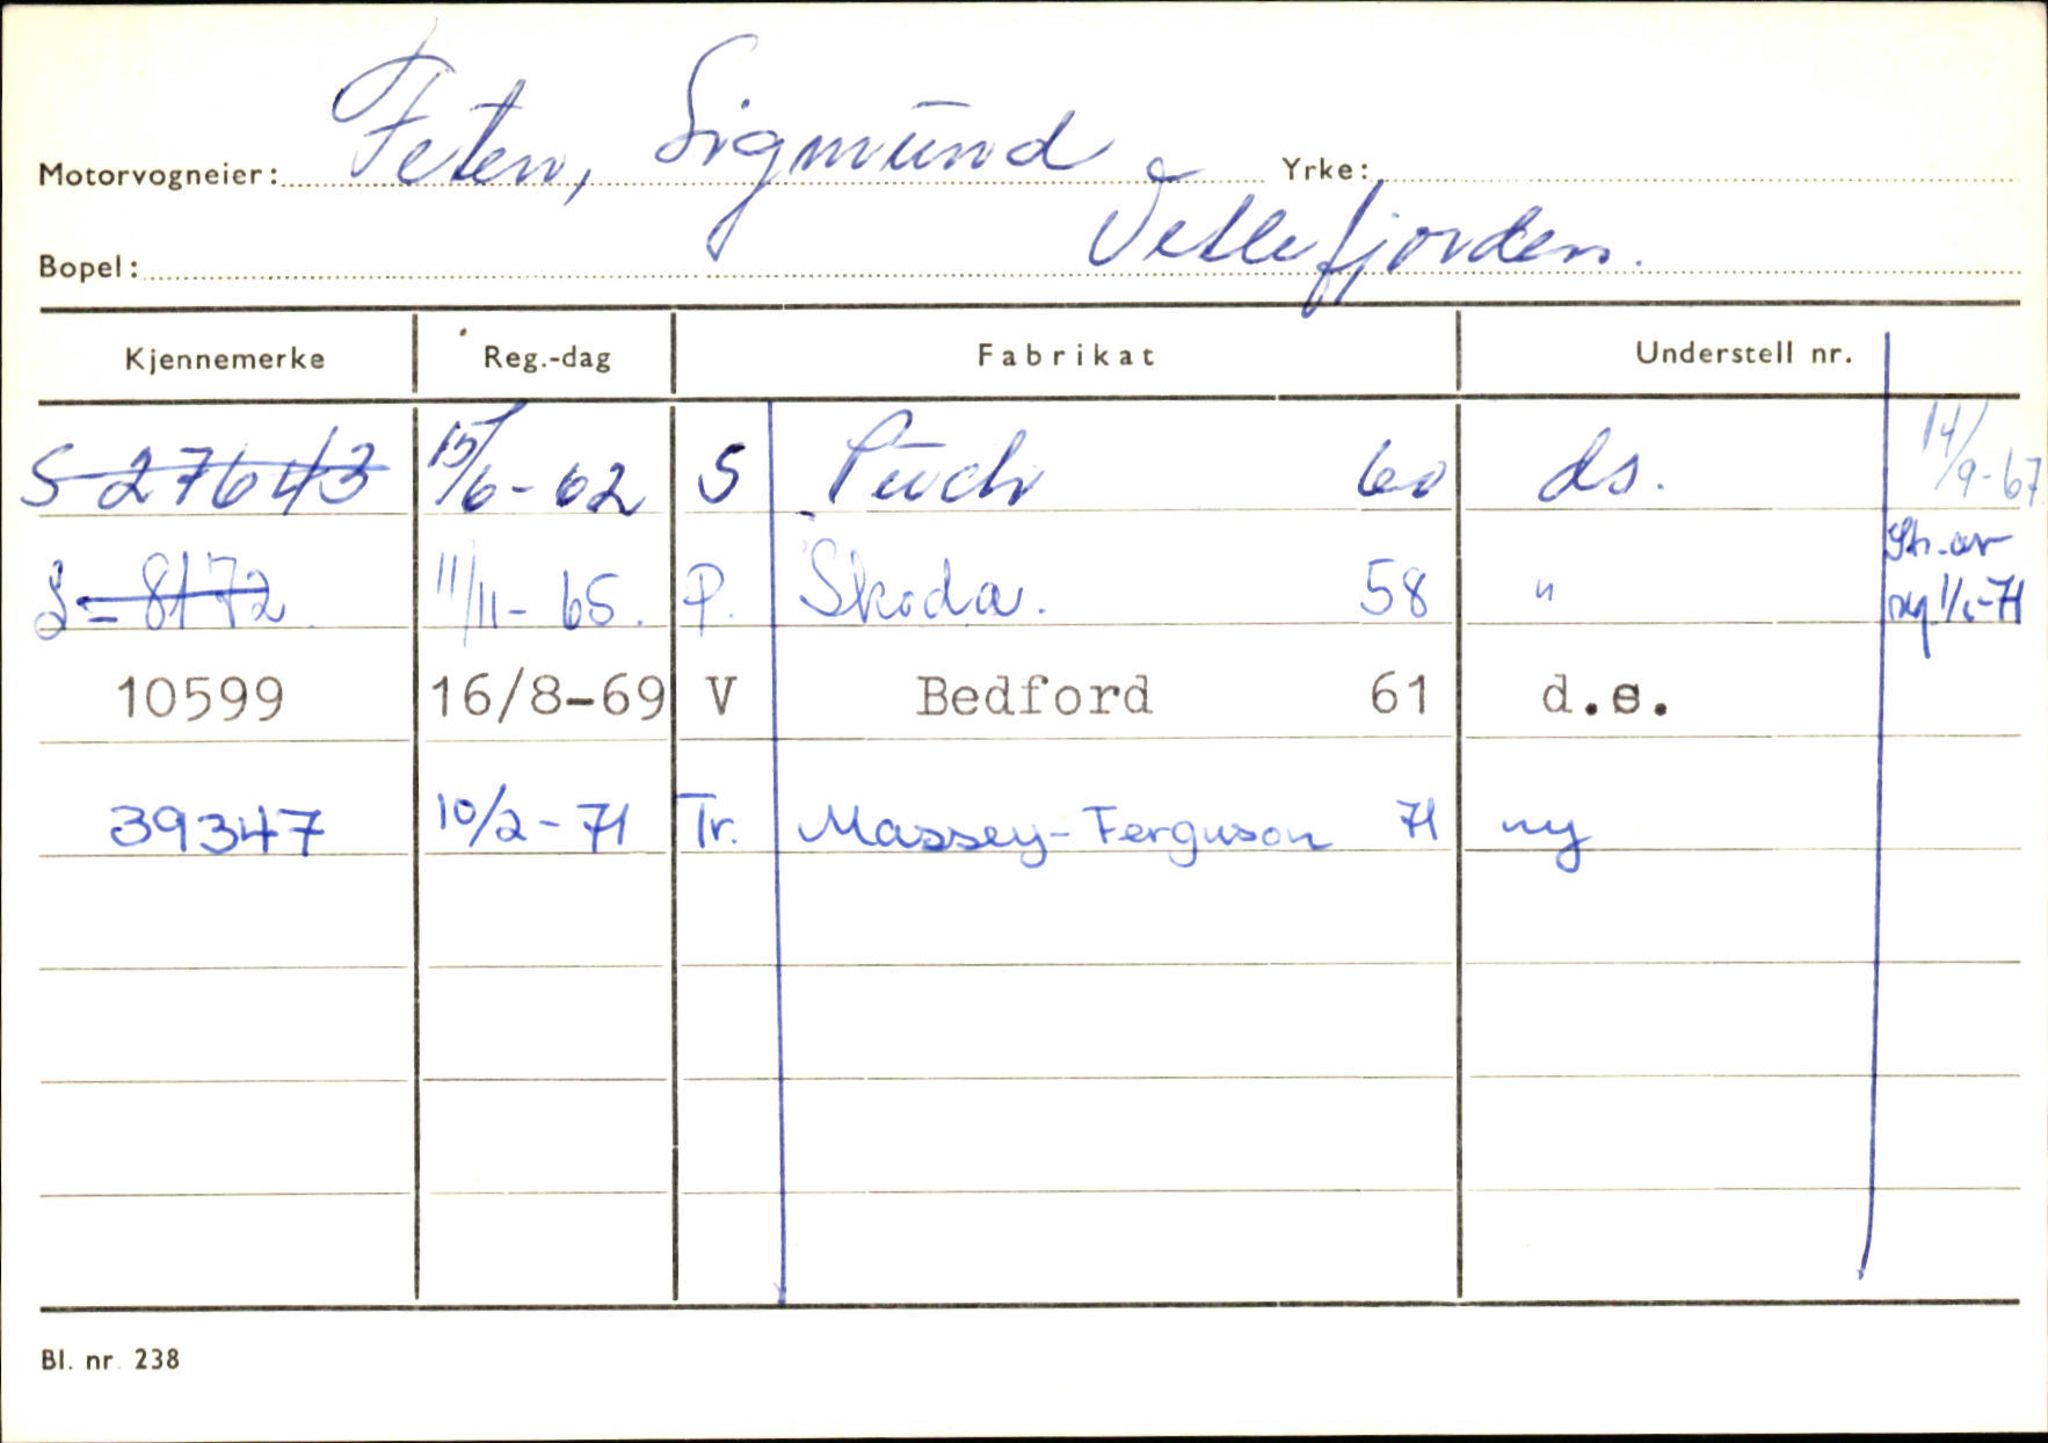 Motorvogneier: Feten, Sigmund Yrke:
Bopel: Vetlefjorden.
Kjennemerke Reg.-dag Fabrikat Understell nr.
S-27643 15/6-62 S Puch 60 ds. 14/9-67
S-8172 11/11-65. P. Skoda. 58 " Str. av reg. 1/6-71
10599 16/8-69 V Bedford 61 d.s.
39347 10/2-71 Tr. Massey-Ferguson 71 ny
Bl. nr. 238